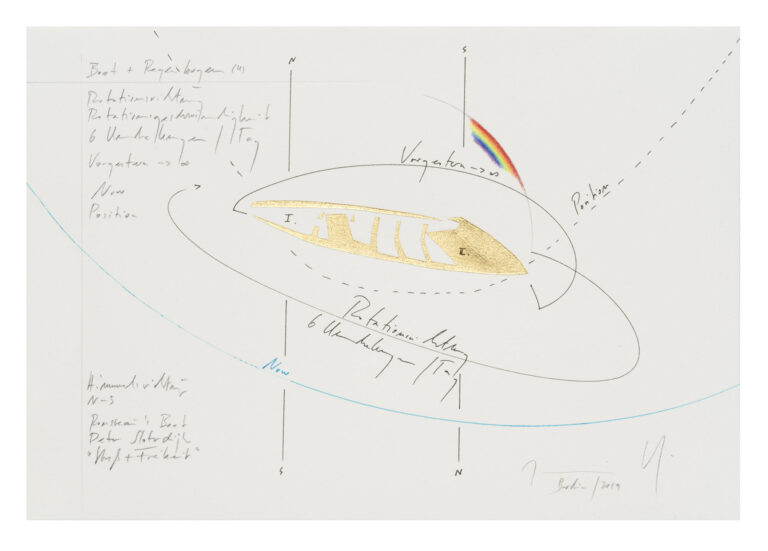 Boot + Regenbogen (4)
Rotationsrichtung
Rotationsgeschwindigkeit
6 Umdrehungen / Tag
Vorgestern -> ∞
Now
Position
N
S
Vorgestern -> ∞
Position
I.
I.
Rotationsrichtung
6 Umdrehungen / Tag
Now
Himmelsrichtung
N-S
Rousseau's Boot
Peter Sloterdijk
"Streß + Freiheit"
S
N
Berlin / 2019